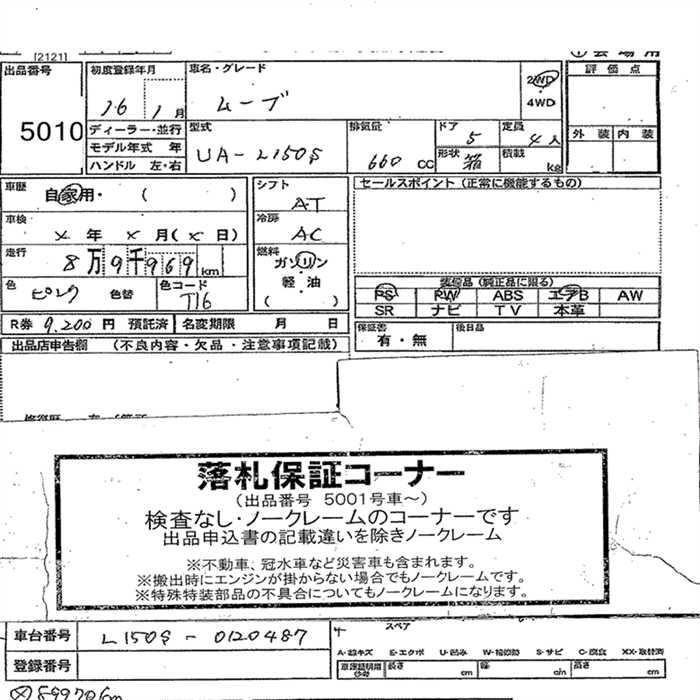 [2121]
出品番号 5010
初度登録年月 16 1月
車名・グレード ムーブ
2WD・4WD
評価点
ディーラー・並行
モデル年式 年
ハンドル 左・右
型式 UA-L150S
排気量 660 CC
ドア 5
定員 4人
形状 箱
積載 kg
外装 内装
車歴 自家用・( )
シフト AT
セールスポイント (正常に機能するもの)
車検 × 年 × 月(× 日)
冷房 AC
走行 8万9千969km
燃料 ガソリン・軽油 ( )
色 ピンク 色替
色コード T16
装備品(純正品に限る)
PS PW ABS エアB AW
SR ナビ TV 本革
R券 9,200円 預託済 名変期限 月 日
保証書 有・無 後日品
出品店申告欄 (不良内容・欠品・注意事項記載)
落札保証コーナー
(出品番号 5001号車～)
検査なし・ノークレームのコーナーです
出品申込書の記載違いを除きノークレーム
※不動車、冠水車など災害車も含まれます。
※搬出時にエンジンが掛からない場合でもノークレームです。
※特殊特装部品の不具合についてもノークレームになります。
車台番号 L150S-0120487
スペア
登録番号
A-線キズ E-エクボ U-凹み W-補修跡 S-サビ C-腐食 XX-取替済
長さ cm 幅 cm 高さ cm